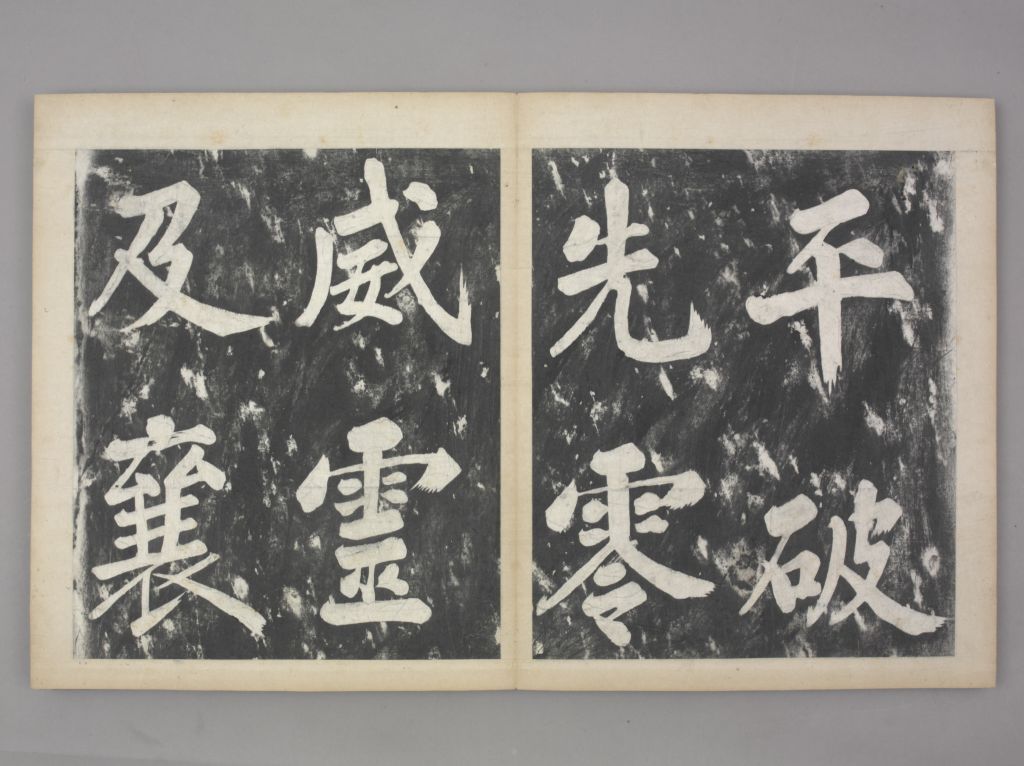 平破
先零
威靈
及襄